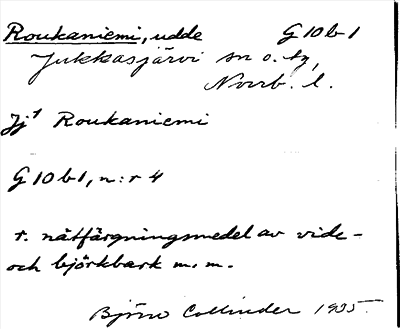 Roukaniemi, udde G 10 b 1
Jukkasjärvi sn o. tg,
Norrb. l.
Jj¹ Roukaniemi
G 10 b 1, n:r 4
r. nätfärgningsmedel av vide-
och björkbark m. m.
Björn Collinder 1935.